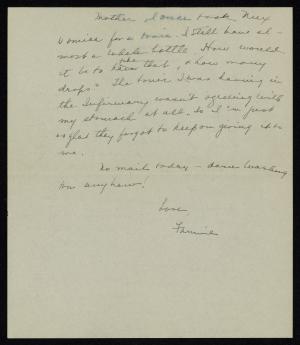 Mother, I once took Nux
Vomica for a tonic. I still have al-
most a whole bottle. How would
it be to take that, & how many
drops? The tonic I was having in
the Infirmary wasn't agreeing with
my stomach at all. So I'm just
as glad they forgot to keep on giving it to
me.
No mail today — darn Washing
ton anyhow!
Love,
Fannie